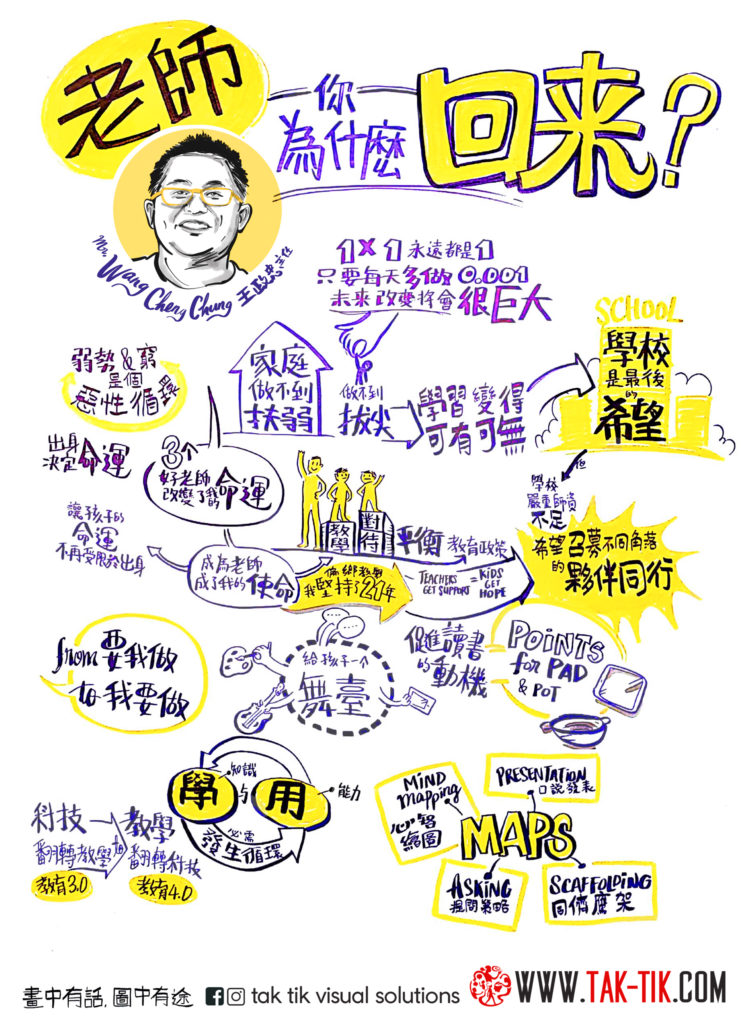 老師
你
為什麼
回来?
Mr. Wang Cheng Chung 王政忠主任
1 x 1 永遠都是 1
只要每天多做 0.001
未來改變將會 很巨大
弱勢 & 窮
是個
惡性循環
家庭
做不到
扶弱
做不到
拔尖
學習變得
可有可無
SCHOOL
學校
是最後
的
希望
出身
決定 命運
3个
好老師
改變了我的命運
他
學校
嚴重師資
不足
讓孩子的
命運
不再受限於出身
成為老師
成了我的使命
教學
對待
平衡 教育政策
偏鄉教學
我堅持了21年
TEACHERS
GET SUPPORT
=
KIDS
GET
HOPE
希望召募不同角落
的夥伴同行
from 要我做
to 我要做
給孩子一个
舞臺
促進讀書
的動機
POINTS
for PAD
& POT
學
知識
与
用
能力
必需
發生循環
科技
翻轉教學
教育3.0
教學
翻轉科技
教育4.0
MAPS
MIND
mapping
心智
繪圖
PRESENTATION
口說發表
ASKING
提問策略
SCAFFOLDING
同儕鷹架
畫中有話, 圖中有途
tak tik visual solutions
WWW.TAK-TIK.COM